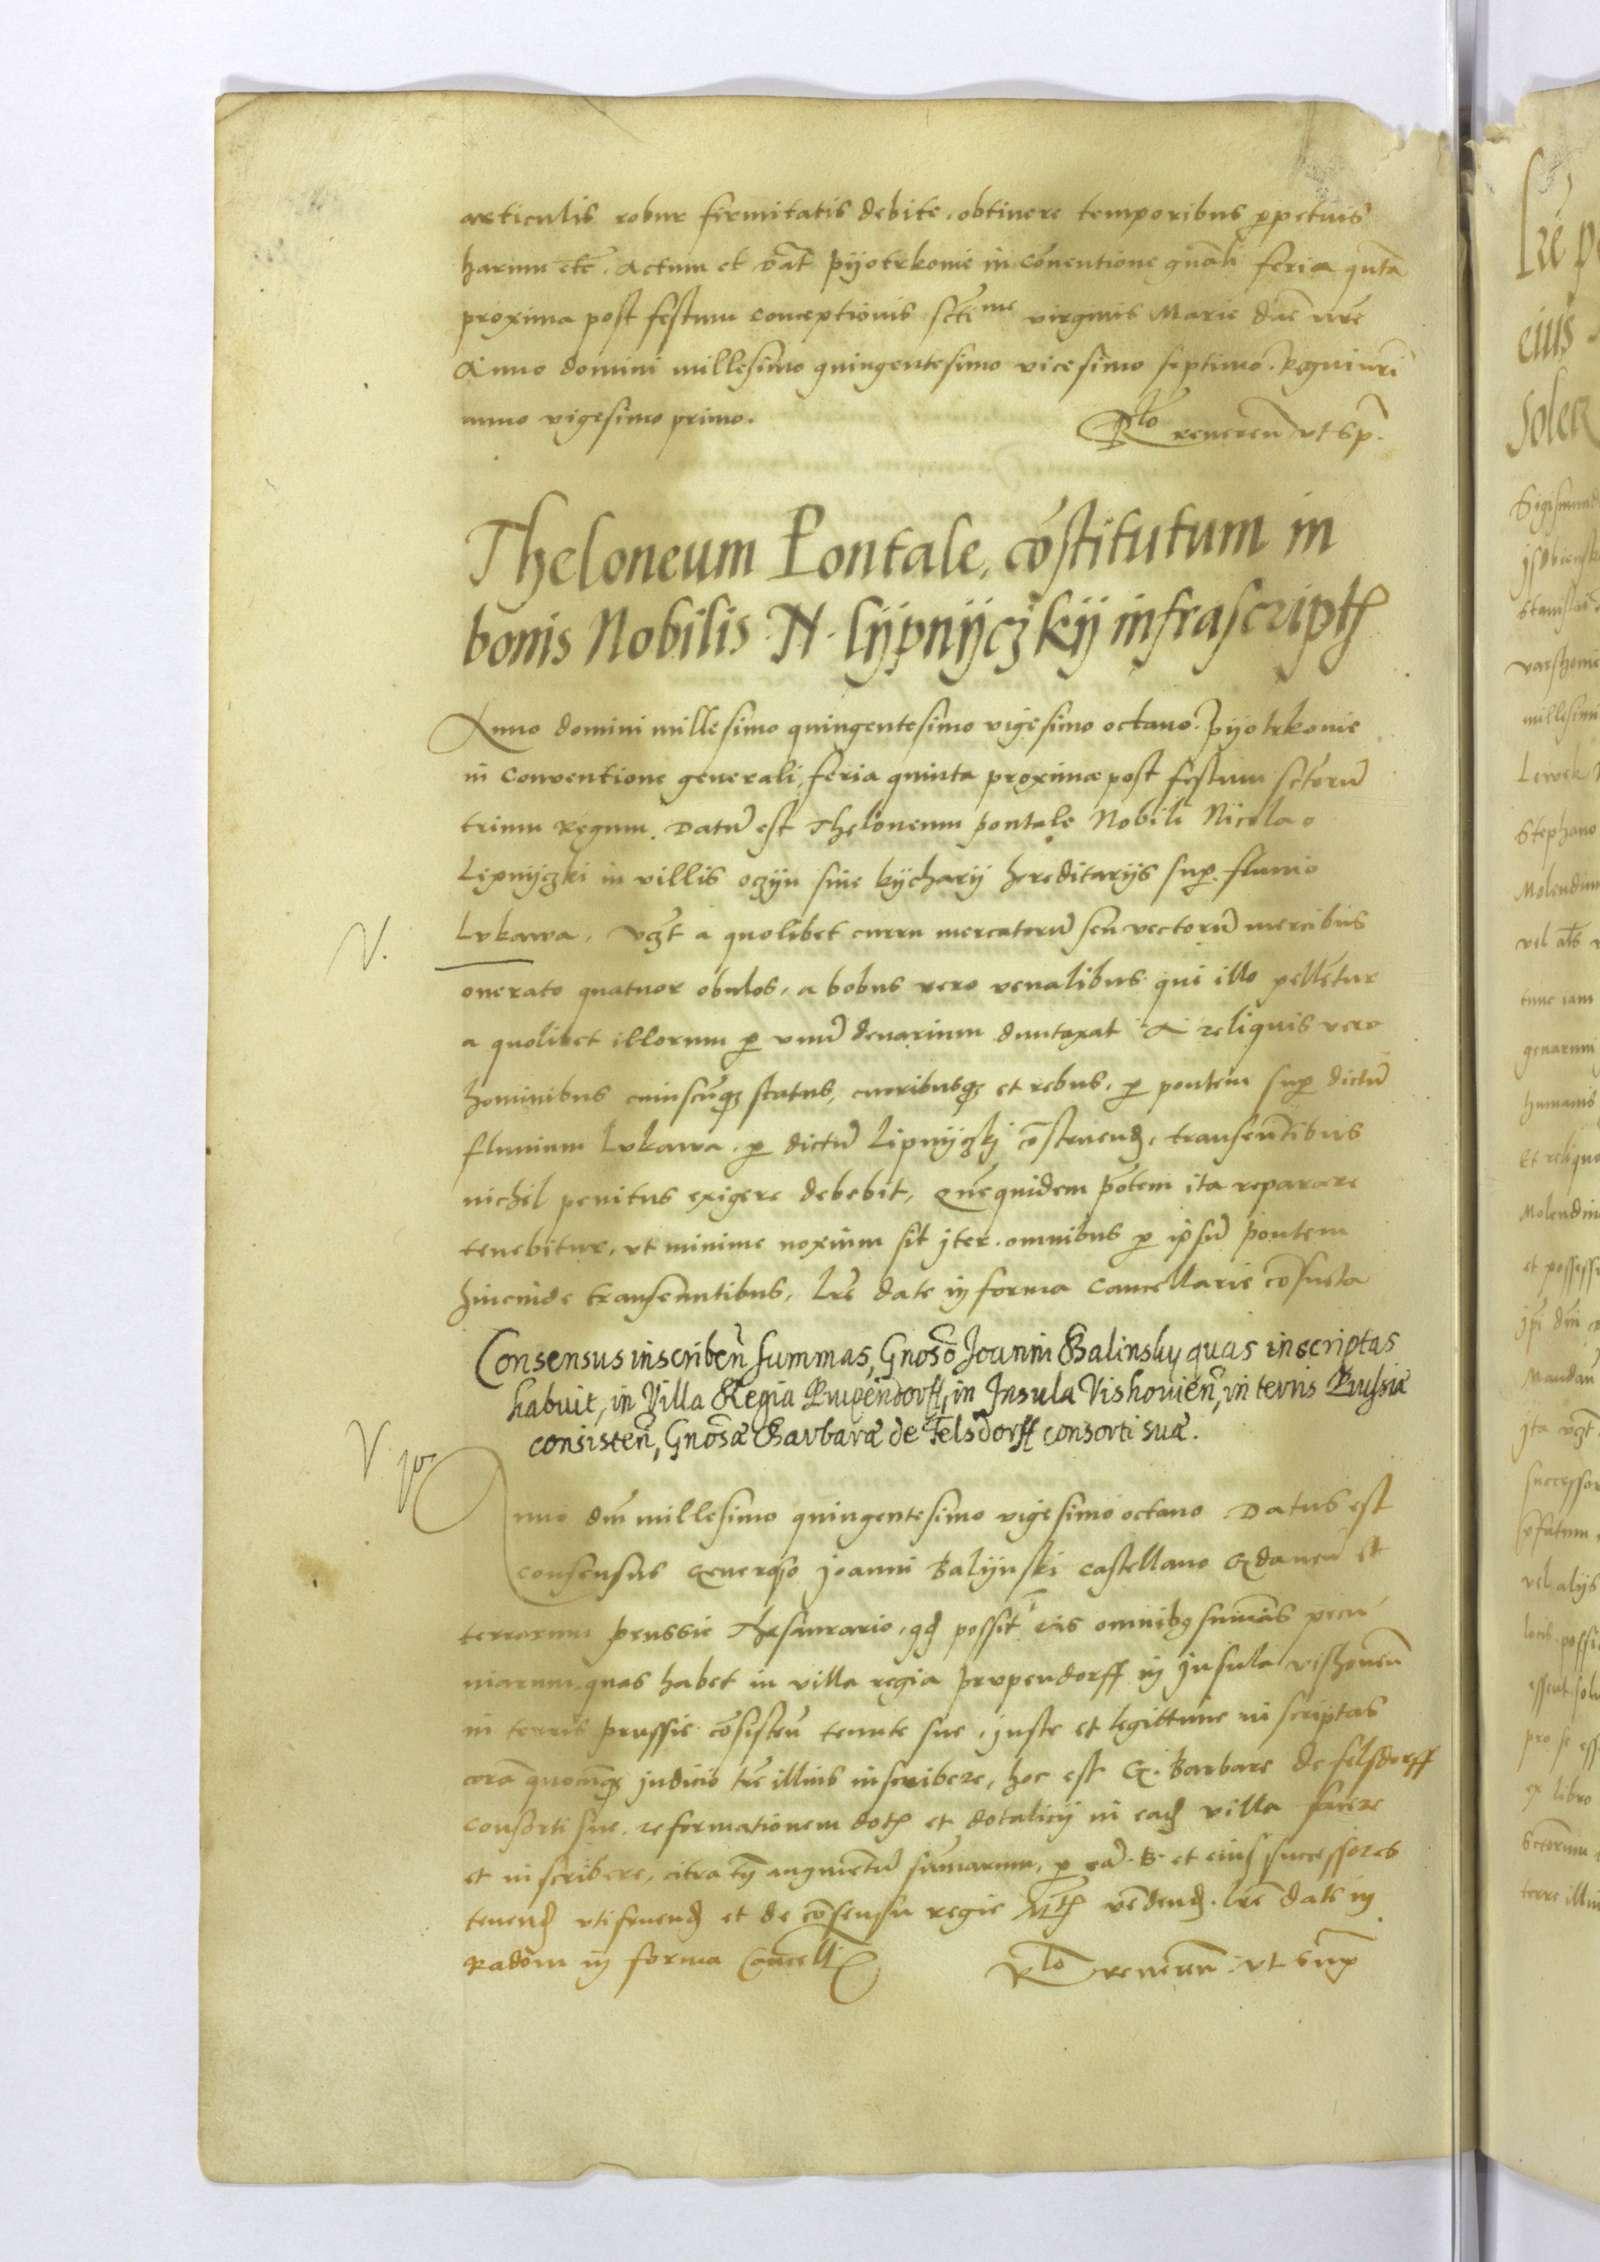 articulis robur firmitatis debite, obtinere temporibus ꝑpetuis
harum etc̄. Actum et Dat̄ Pijotrkowie in cōventione gn̄ali feria qn̄ta
proxima post festum conceptionis sctī me virginis Marie dn̄e nr̄e
Anno domini millesimo quingentesimo vicesimo septimo. Regni nr̄i
anno vigesimo primo.
Rlo reveren̄ vt sp̄.
Theloneum Pontale, cōstitutum in
bonis Nobilis .N. lijpnijczkij infrascriptꝭ
Anno domini millesimo quingentesimo vigesimo octavo. Pijotrkowie
in Conventione generali, feria quinta proxima post festum sctorū
trium Regum. Datū est Theloneum pontale Nobili Nicolao
Lipnijczki in villis oczijn sive kijcharij hereditarijs suꝑ fluvio
Lvkawa, vꝫt a quolibet curru mercatorū seu vectorū mercibus
onerato quatuor obulos, a bobus vero venalibus qui illo pellētur
a quolibet illorum ꝑ vnū denarium duntaxat A reliquis vero
hominibus cuiuscūqꝫ status, curribusqꝫ et rebus, ꝑ pontem suꝑ dictū
fluvium Lvkawa, ꝑ dictū Lipnijczkj cōstruend, transeūtibus
nichil penitus exigere debebit, Quēquidem pōtem ita reparare
tenebitur, vt minime noxium sit jter omnibus ꝑ ipsū pontem
hincinde transeuntibus, Lr̄e date in forma Cancellarie cōsueta
Consensus inscriben̄ summas, Gnoso Joanni Balinsky quas inscriptas
habuit, in Villa Regia Prupendorff, in Insula Vishovien̄, in terris Prussiæ
consisten̄, Gnosæ Barbaræ de Felsdorff consorti suæ.
V.
V
Anno dn̄i millesimo quingentesimo vigesimo octavo Datus est
consensus Generoso Joanni Balijnski castellano Gdanen̄ et
terrarum prussie Thesaurario, qđ possit eis omnibꝫ sum̄as pecu
niarum, quas habet in villa regia prvpendorff in Jnsula vishovien̄
in terris prussie cōsisten̄ tenute sue, juste et legittime inscriptas
corā quocūqꝫ judicio tr̄e illius inscribere, hoc est G. Barbare de felsdorff
consorti sue reformationem dotꝭ et dotalicij in eađ villa facere
et inscribere, citra tn̄ augmentū sum̄arum, ꝑ eā .B. et eius successores
tenenđ vtifruenđ et de cōsensu regie Mtꝭ vēdenđ. Lr̄e date in
Radom in forma Cancell
Rlo reveren̄ vt supͣ